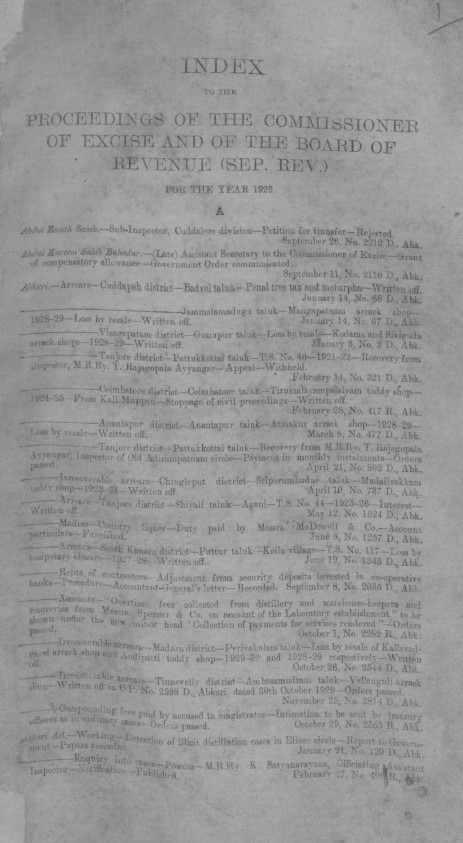 1
INDEX
TO THE
PROCEEDINGS OF THE COMMISSIONER
OF EXCISE AND OF THE BOARD OF
REVENUE (SEP. REV.)
FOR THE YEAR 1929.
A
Abdul Basith Sahib.—Sub-Inspector, Cuddalore division—Petition for transfer—Rejected.
September 26, No. 2212 D., Abk.
Abdul Kareem Sahib Bahadur.—(Late) Assistant Secretary to the Commissioner of Excise—Grant
of compensatory allowance—Government Order communicated.
September 11, No. 2110 D., Abk.
Abkari.—Arrears—Cuddapah district—Badvel taluk—Penal tree tax and moturpha—Written off.
January 14, No. 66 D., Abk.
Jammalamadugu taluk—Mangapatnam arrack shop—
1928-29—Loss by resale—Written off.
January 14, No. 67 D., Abk.
Vizagapatam district—Gunupur taluk—Loss by resale—Kotama and Siviguda
arrack shops—1928-29—Written off.
January 3, No. 2 D., Abk.
Tanjore district—Pattukkottai taluk—T.S. No. 40—1921-22—Recovery from
inspector, M.R.Ry. T. Rajagopala Ayyangar—Appeal—Withheld.
February 14, No. 321 D., Abk.
Coimbatore district—Coimbatore taluk—Tirumalayampalaiyam toddy shop—
1924-25—From Kali Muppan—Stoppage of civil proceedings—Written off.
February 28, No. 417 R., Abk.
Anantapur district—Anantapur taluk—Atmakur arrack shop—1928-29—
Loss by resale—Written off.
March 8, No. 477 D., Abk.
Tanjore district—Pattukkottai taluk—Recovery from M.R.Ry. T. Rajagopala
Ayyangar, Inspector of Old Adirampatnam circle—Payment in monthly instalments—Orders
passed.
April 21, No. 502 D., Abk.
Irrecoverable arrears—Chingleput district—Sriperumbudur taluk—Madalipakkam
toddy shop—1923-24—Written off.
April 10, No. 737 D., Abk.
Arrears—Tanjore district—Shiyali taluk—Agani—T.S. No. 44—1925-26—Interest—
Written off.
May 12, No. 1024 D., Abk.
Madras—Country liquor—Duty paid by Messrs. McDowell & Co.—Account
particulars—Furnished.
June 8, No. 1257 D., Abk.
Arrears—South Kanara district—Puttur taluk—Koila village—T.S. No. 117—Loss by
temporary closure—1927-28—Written off.
June 19, No. 1345 D., Abk.
Rents of contractors—Adjustment from security deposits invested in co-operative
banks—Procedure—Accountant-General's letter—Recorded. September 8, No. 2035 D., Abk.
Accounts—"Overtime fees" collected from distillery and warehouse-keepers and
recoveries from Messrs. Spencer & Co. on account of the Laboratory establishment " to be
shown under the new minor head ' Collection of payments for services rendered "—Orders
passed.
October 1, No. 2282 R., Abk.
Irrecoverable arrears—Madura district—Periyakulam taluk—Loss by resale of
arrack shop and Andipatti toddy shop—1929-30 and 1928-29 respectively—Written
off.
October 26, No. 2544 D., Abk.
Irrecoverable arrears—Tinnevelly district—Ambasamudram taluk—Vellanguli arrack
shop—Written off in G.P. No. 2598 D., Abkari, dated 30th October 1929—Orders passed.
November 25, No. 3814 D., Abk.
Compounding fees paid by accused to magistrates—Intimation to be sent by treasury
officers as in ordinary cases—Orders passed.
October 29, No. 2565 R., Abk.
Abkari Act.—Working—Detection of illicit distillation cases in Ellore circle—Report to Govern-
ment—Papers recorded.
January 21, No. 129 D., Abk.
Enquiry into cases—Powers—M.R.Ry. K. Satyanarayana, Officiating Assistant
Inspector—Notification—Published.
February 27, No. R., Abk.